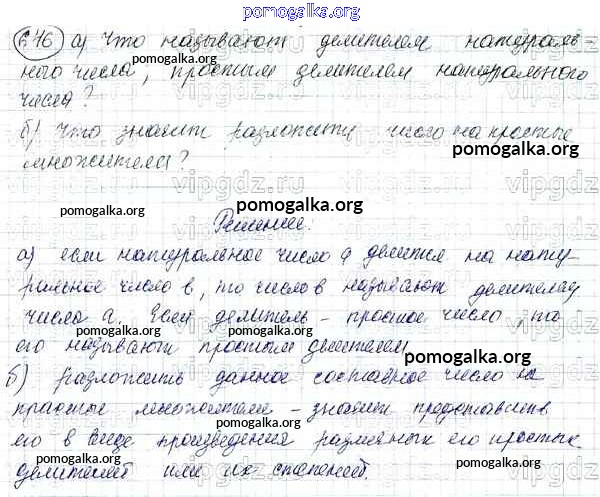 pomogalka.org
676 а) Что называют делителем натураль-
ного числа, простым делителем натурального
числа?
б) Что значит разложить число на простые
множители?
pomogalka.org
pomogalka.org
Решение:
а) если натуральное число а делится на нату-
ральное число в, то число в называют делителем
числа а. Если делитель - простое число, то
его называют простым делителем
pomogalka.org
б) Разложить данное составное число на
простые множители - значит представить
его в виде произведения различных его простых
делителей или их степеней.
pomogalka.org
pomogalka.org
vipgdz.ru